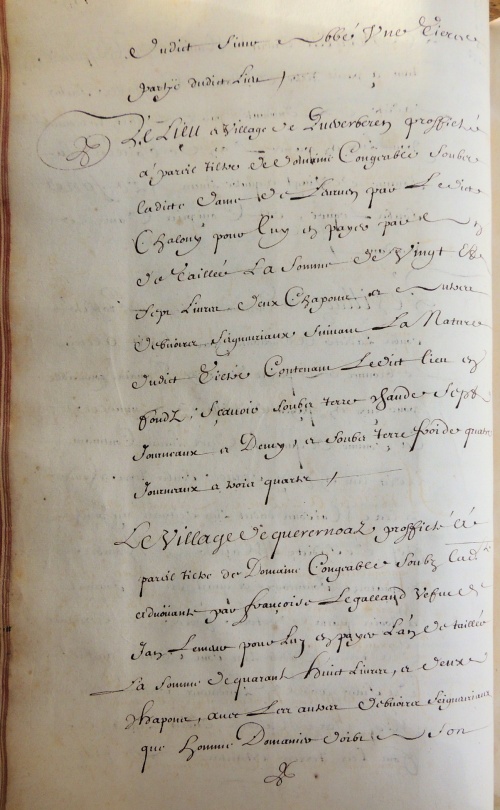 dudict Sieur Abbé Une tierce
partye dudict Lieu
Le Lieu et Village de proffitté
a pareil tiltre de domaine Congeable Soubz
ladicte dame de par Ledict
Chalony pour Luy en payer par
de taillée La Somme de Vingt Et
Sept Livres deux Chapons et autres
debvoirs Seigneuriaux Suivant La Nature
dudict tiltre Contenant Ledict lieu en
fondz, Scavoir Soubz terre chaude Sept
Journeaux et Demy, et Soubz terre froide quatre
Journeaux et trois quartz
Le Village de querernoaz proffitté a
pareil tiltre de Domaine Congeable Soubz lad
advouante par francoise Legalland Vefve de
Jan pour Luy en payer L'an de taillée
La Somme de quarant huict Livres, et deux
Chapons, avec Les autres debvoirs Seigneuriaux
que Homme Domanier doibt a Son